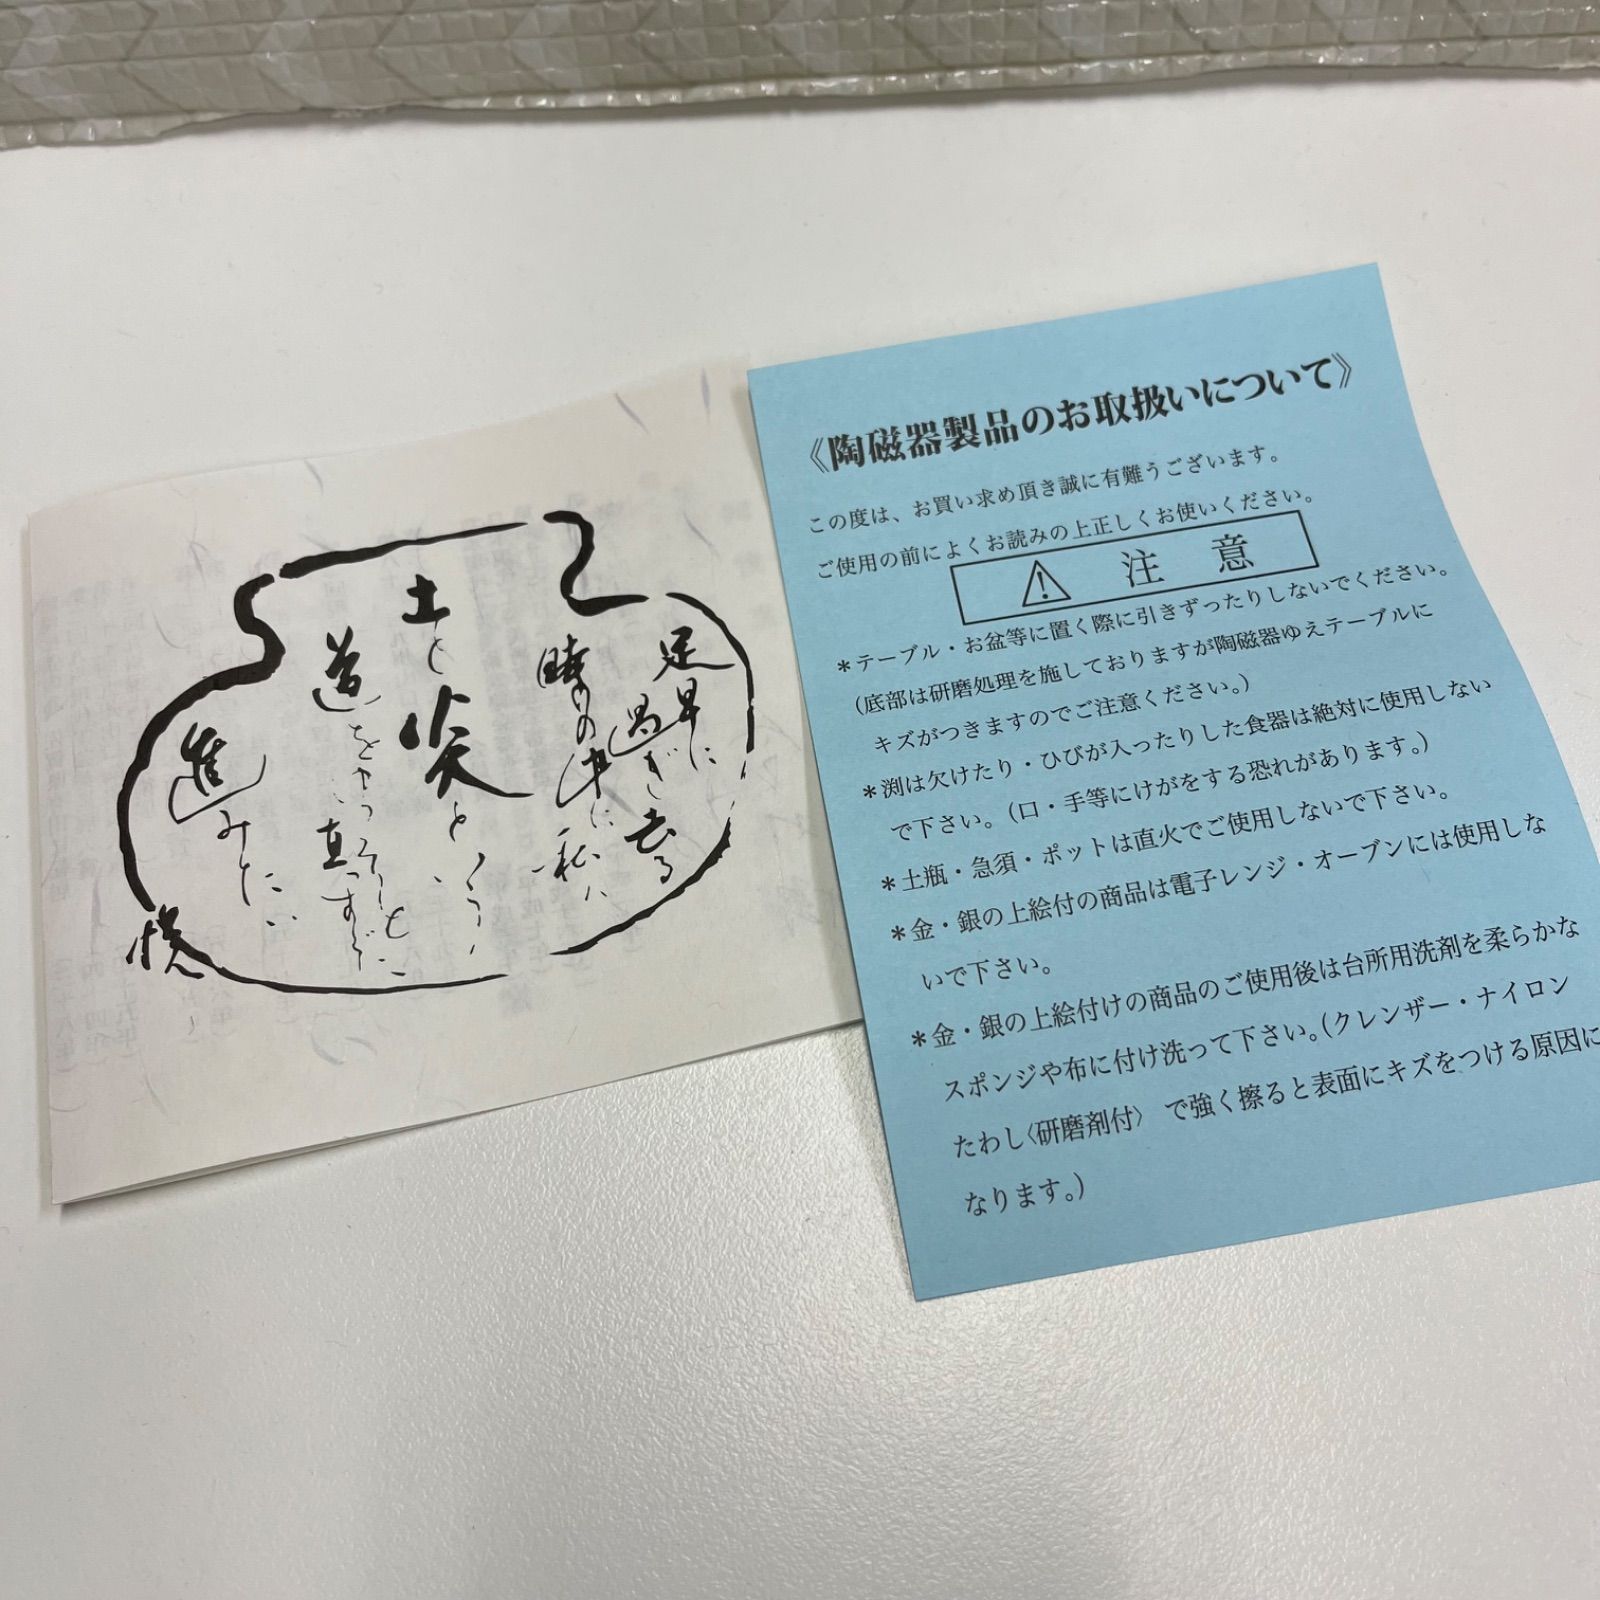 足早に
過ぎ去る
時の中に
私は
土と炎という
道をゆっくりと
真っすぐに
進みたい
《陶磁器製品のお取扱いについて》
この度は、お買い求め頂き誠に有難うございます。
ご使用の前によくお読みの上正しくお使いください。
注 意
＊テーブル・お盆等に置く際に引きずったりしないでください。
(底部は研磨処理を施しておりますが陶磁器ゆえテーブルに
キズがつきますのでご注意ください。)
＊渕は欠けたり・ひびが入ったりした食器は絶対に使用しない
で下さい。(口・手等にけがをする恐れがあります。)
＊土瓶・急須・ポットは直火でご使用しないで下さい。
＊金・銀の上絵付の商品は電子レンジ・オーブンには使用しな
いで下さい。
＊金・銀の上絵付けの商品のご使用後は台所用洗剤を柔らかな
スポンジや布に付け洗って下さい。(クレンザー・ナイロン
たわし〈研磨剤付〉 で強く擦ると表面にキズをつける原因に
なります。)